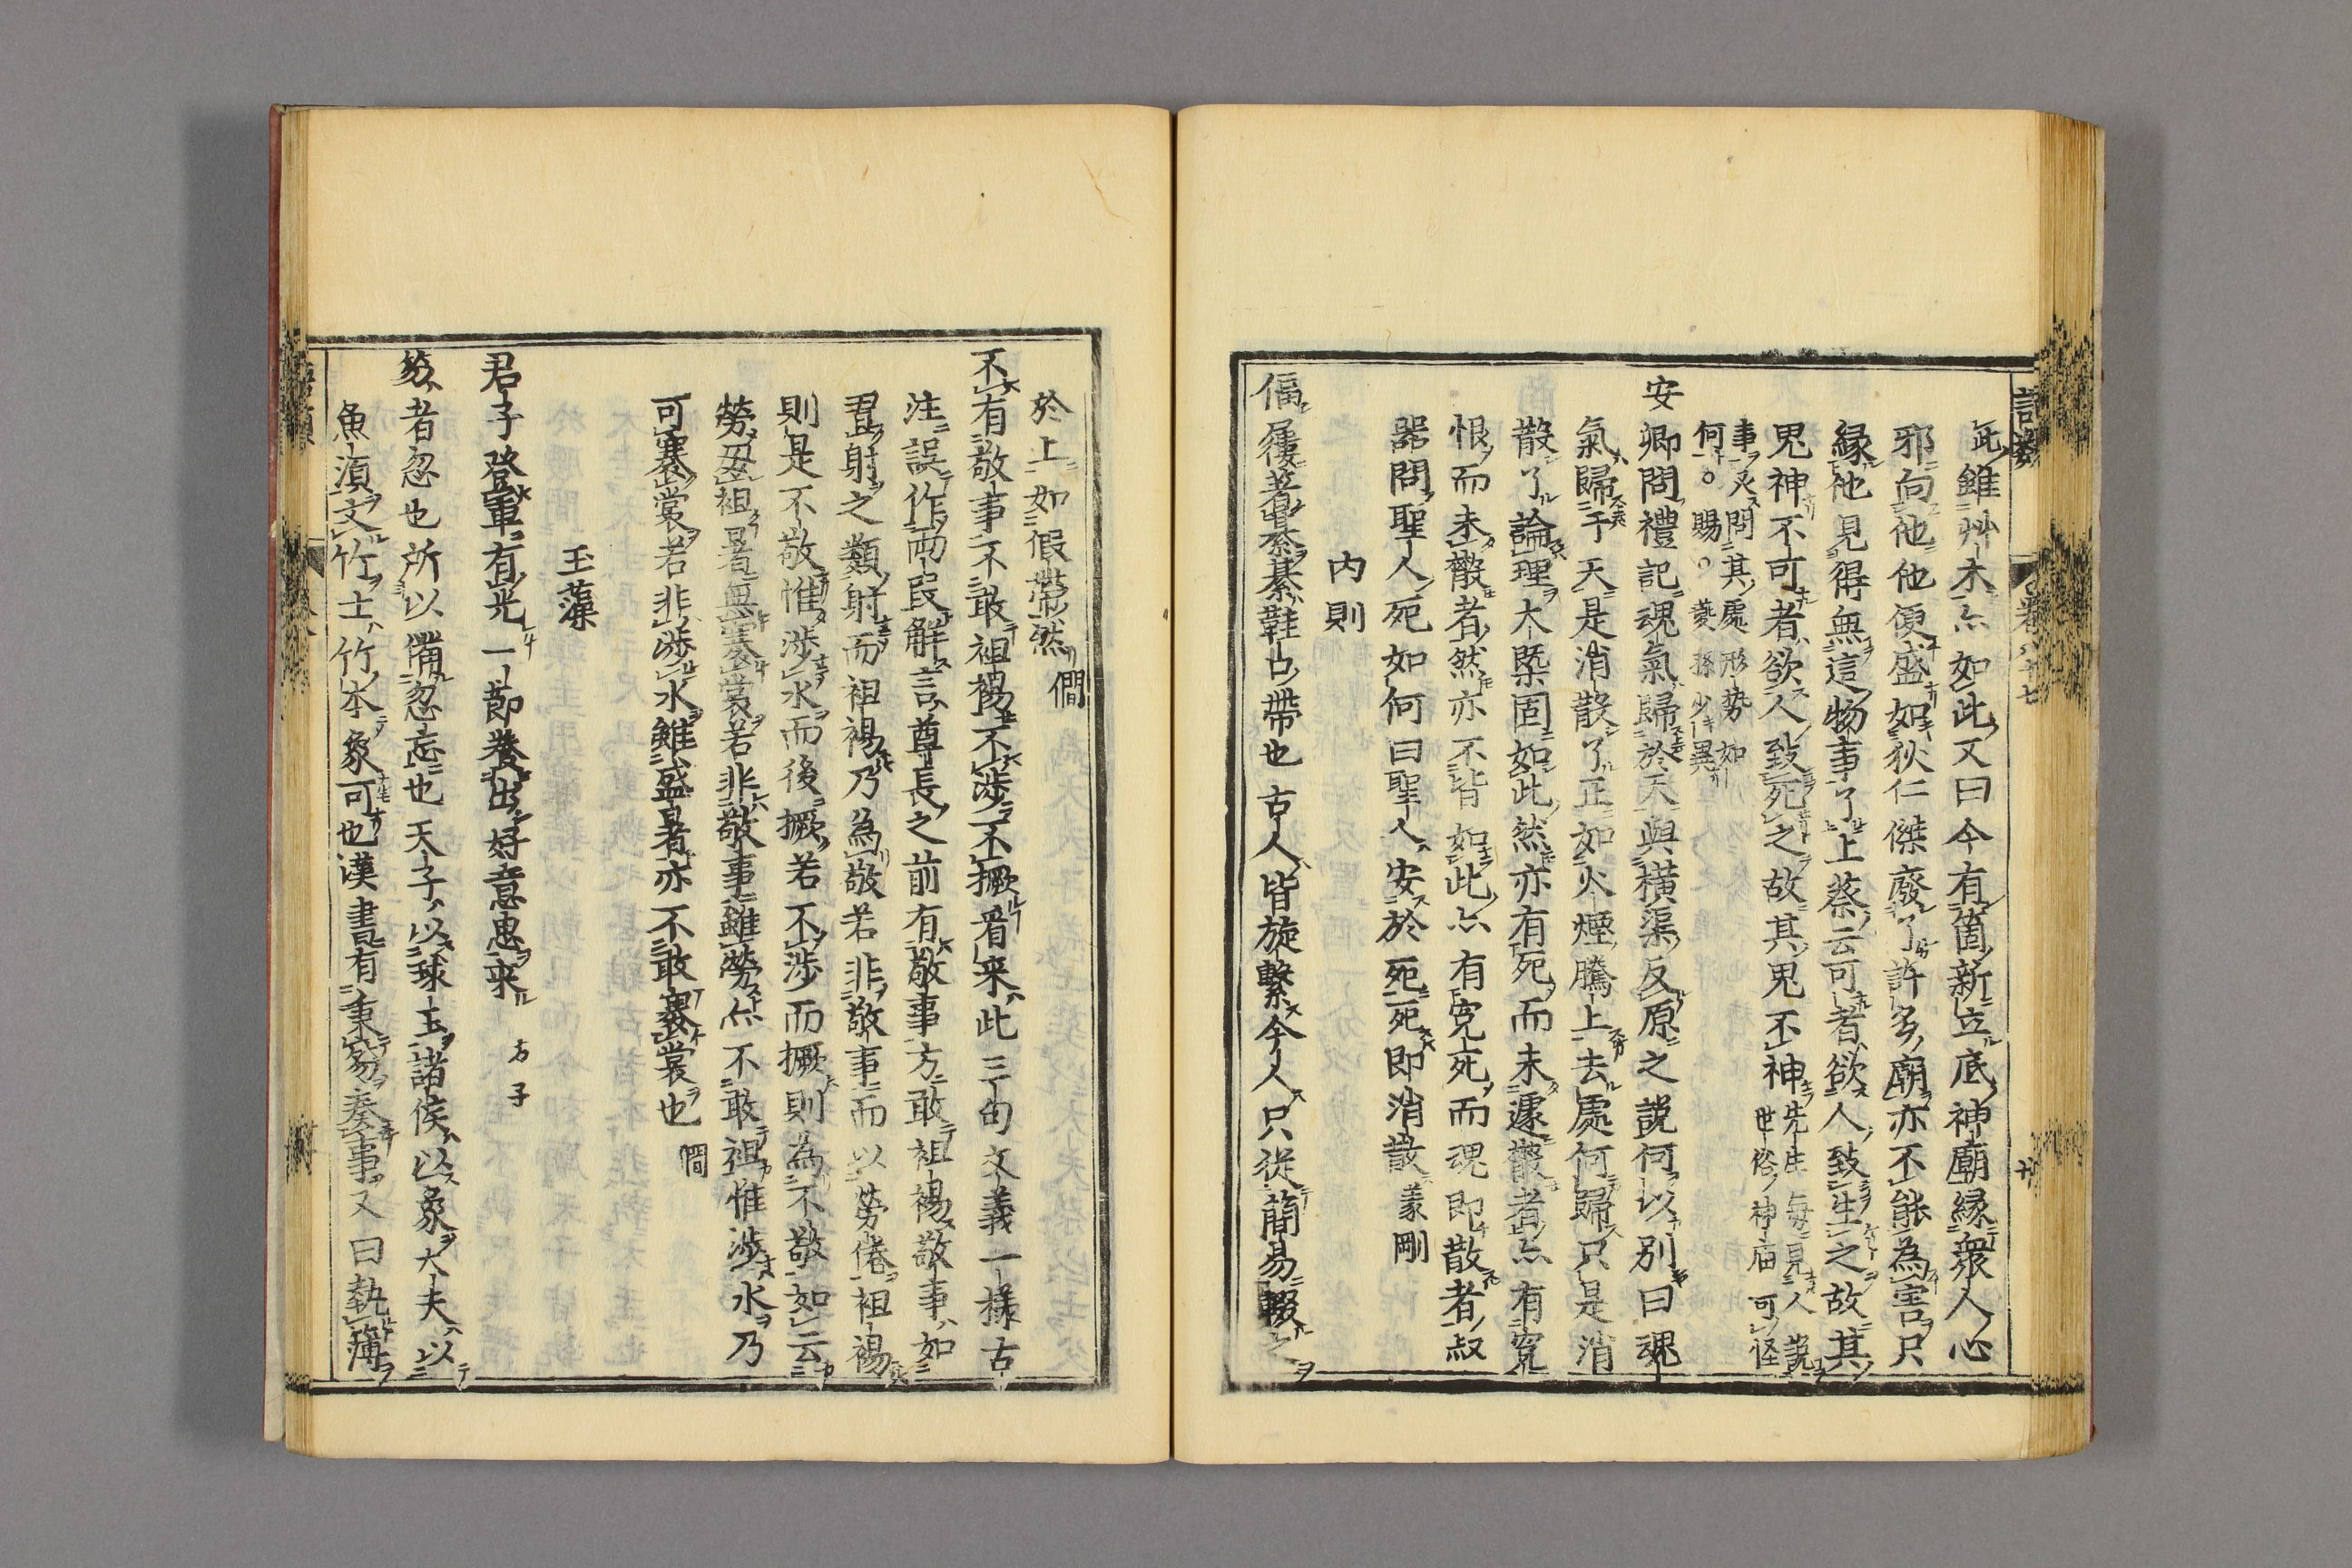 語類 卷八十七 十
死雖艸木亦如此又曰今有箇新立底神廟縁衆人心
邪向他他便盛如狄仁傑廢了許多廟亦不能為害只
縁他見得無這物事了上蔡云可者欲人致生之故其
鬼神不可者欲人致死之故其鬼不神先生毎見人說
世俗神庙可怪
事必問其處形勢如
何○賜○夔孫少異
安卿問禮記魂氣歸於天與橫渠反原之說何以別曰魂
氣歸于天是消散了正如火煙騰上去處何歸只是消
散了論理大槩固如此然亦有死而未遽散者亦有冤
恨而未散者然亦不皆如此亦有冤死而魂即散者叔
器問聖人死如何曰聖人安於死死即消散義剛
內則
偪屨著綦綦鞋口帶也古人皆旋繫今人只從簡易綴
於上如假帶然僩
不有敬事不敢袒裼不涉不撅看来此三句文義一樣古
注誤作兩段解言尊長之前有敬事方敢袒裼敬事如
君射之類射而袒裼乃為敬若非敬事而以勞倦袒裼
則是不敬惟涉水而後撅若不涉而撅則為不敬如云
勞毋袒暑無褰裳若非敬事雖勞亦不敢袒惟涉水乃
可褰裳若非涉水雖盛暑亦不敢褰裳也僩
玉藻
君子登車有光一節養出好意思来方子
笏者忽也所以備忽忘也天子以球玉諸侯以象大夫以
魚湏文竹士竹本象可也漢書有秉笏奏事又曰執簿